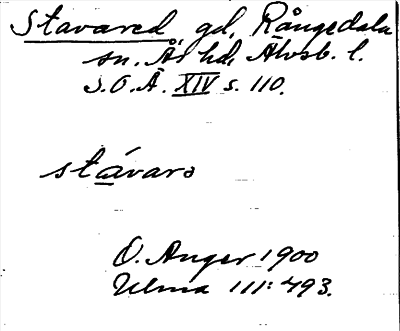 Stavared, gd, Rångedala
sn. Ås hd, Älvsb. l.
S.O.Ä. XIV s. 110.
stávarə
O. Anger 1900
Ulma 111:493.